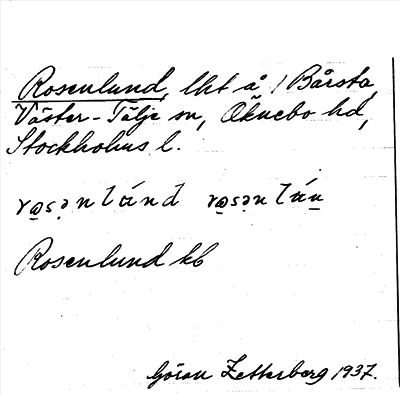 Rosenlund, lht å 1 Bårsta,
Väster-Tälje sn, Öknebo hd,
Stockholms l.
Rosenlund kb
Göran Zetterberg 1937.